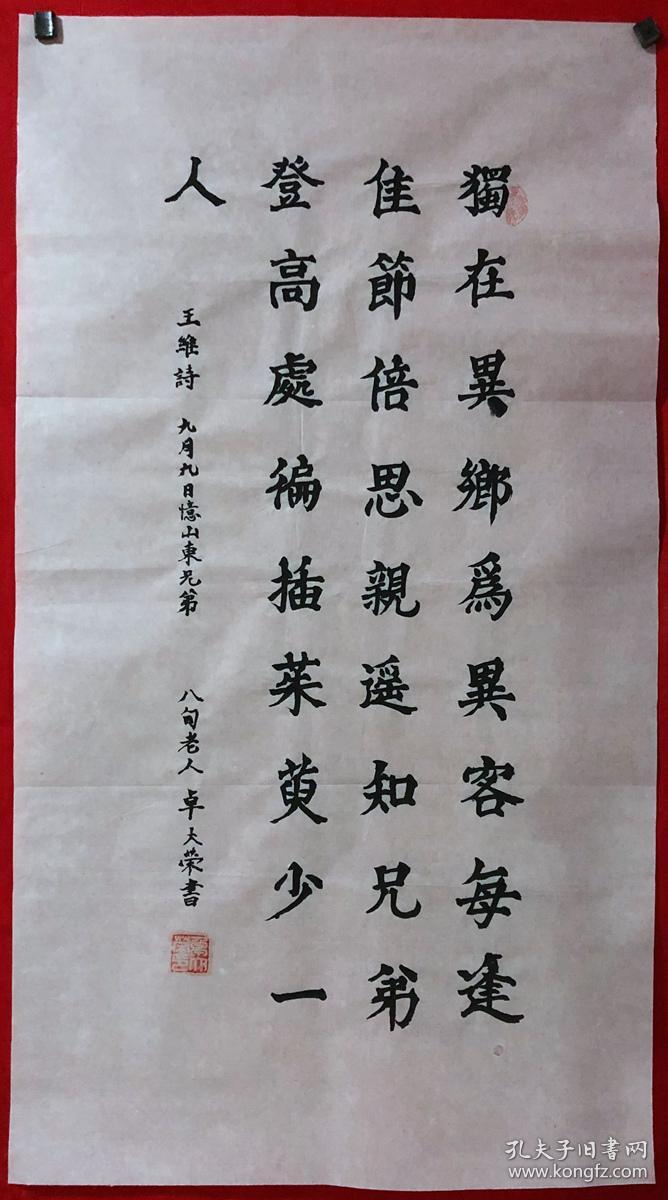 獨在異鄉為異客每逢
佳節倍思親遥知兄弟
登高處徧插茱萸少一
人
王維詩 九月九日憶山東兄弟 八旬老人卓大榮書
孔夫子旧书网
www.kongfz.com